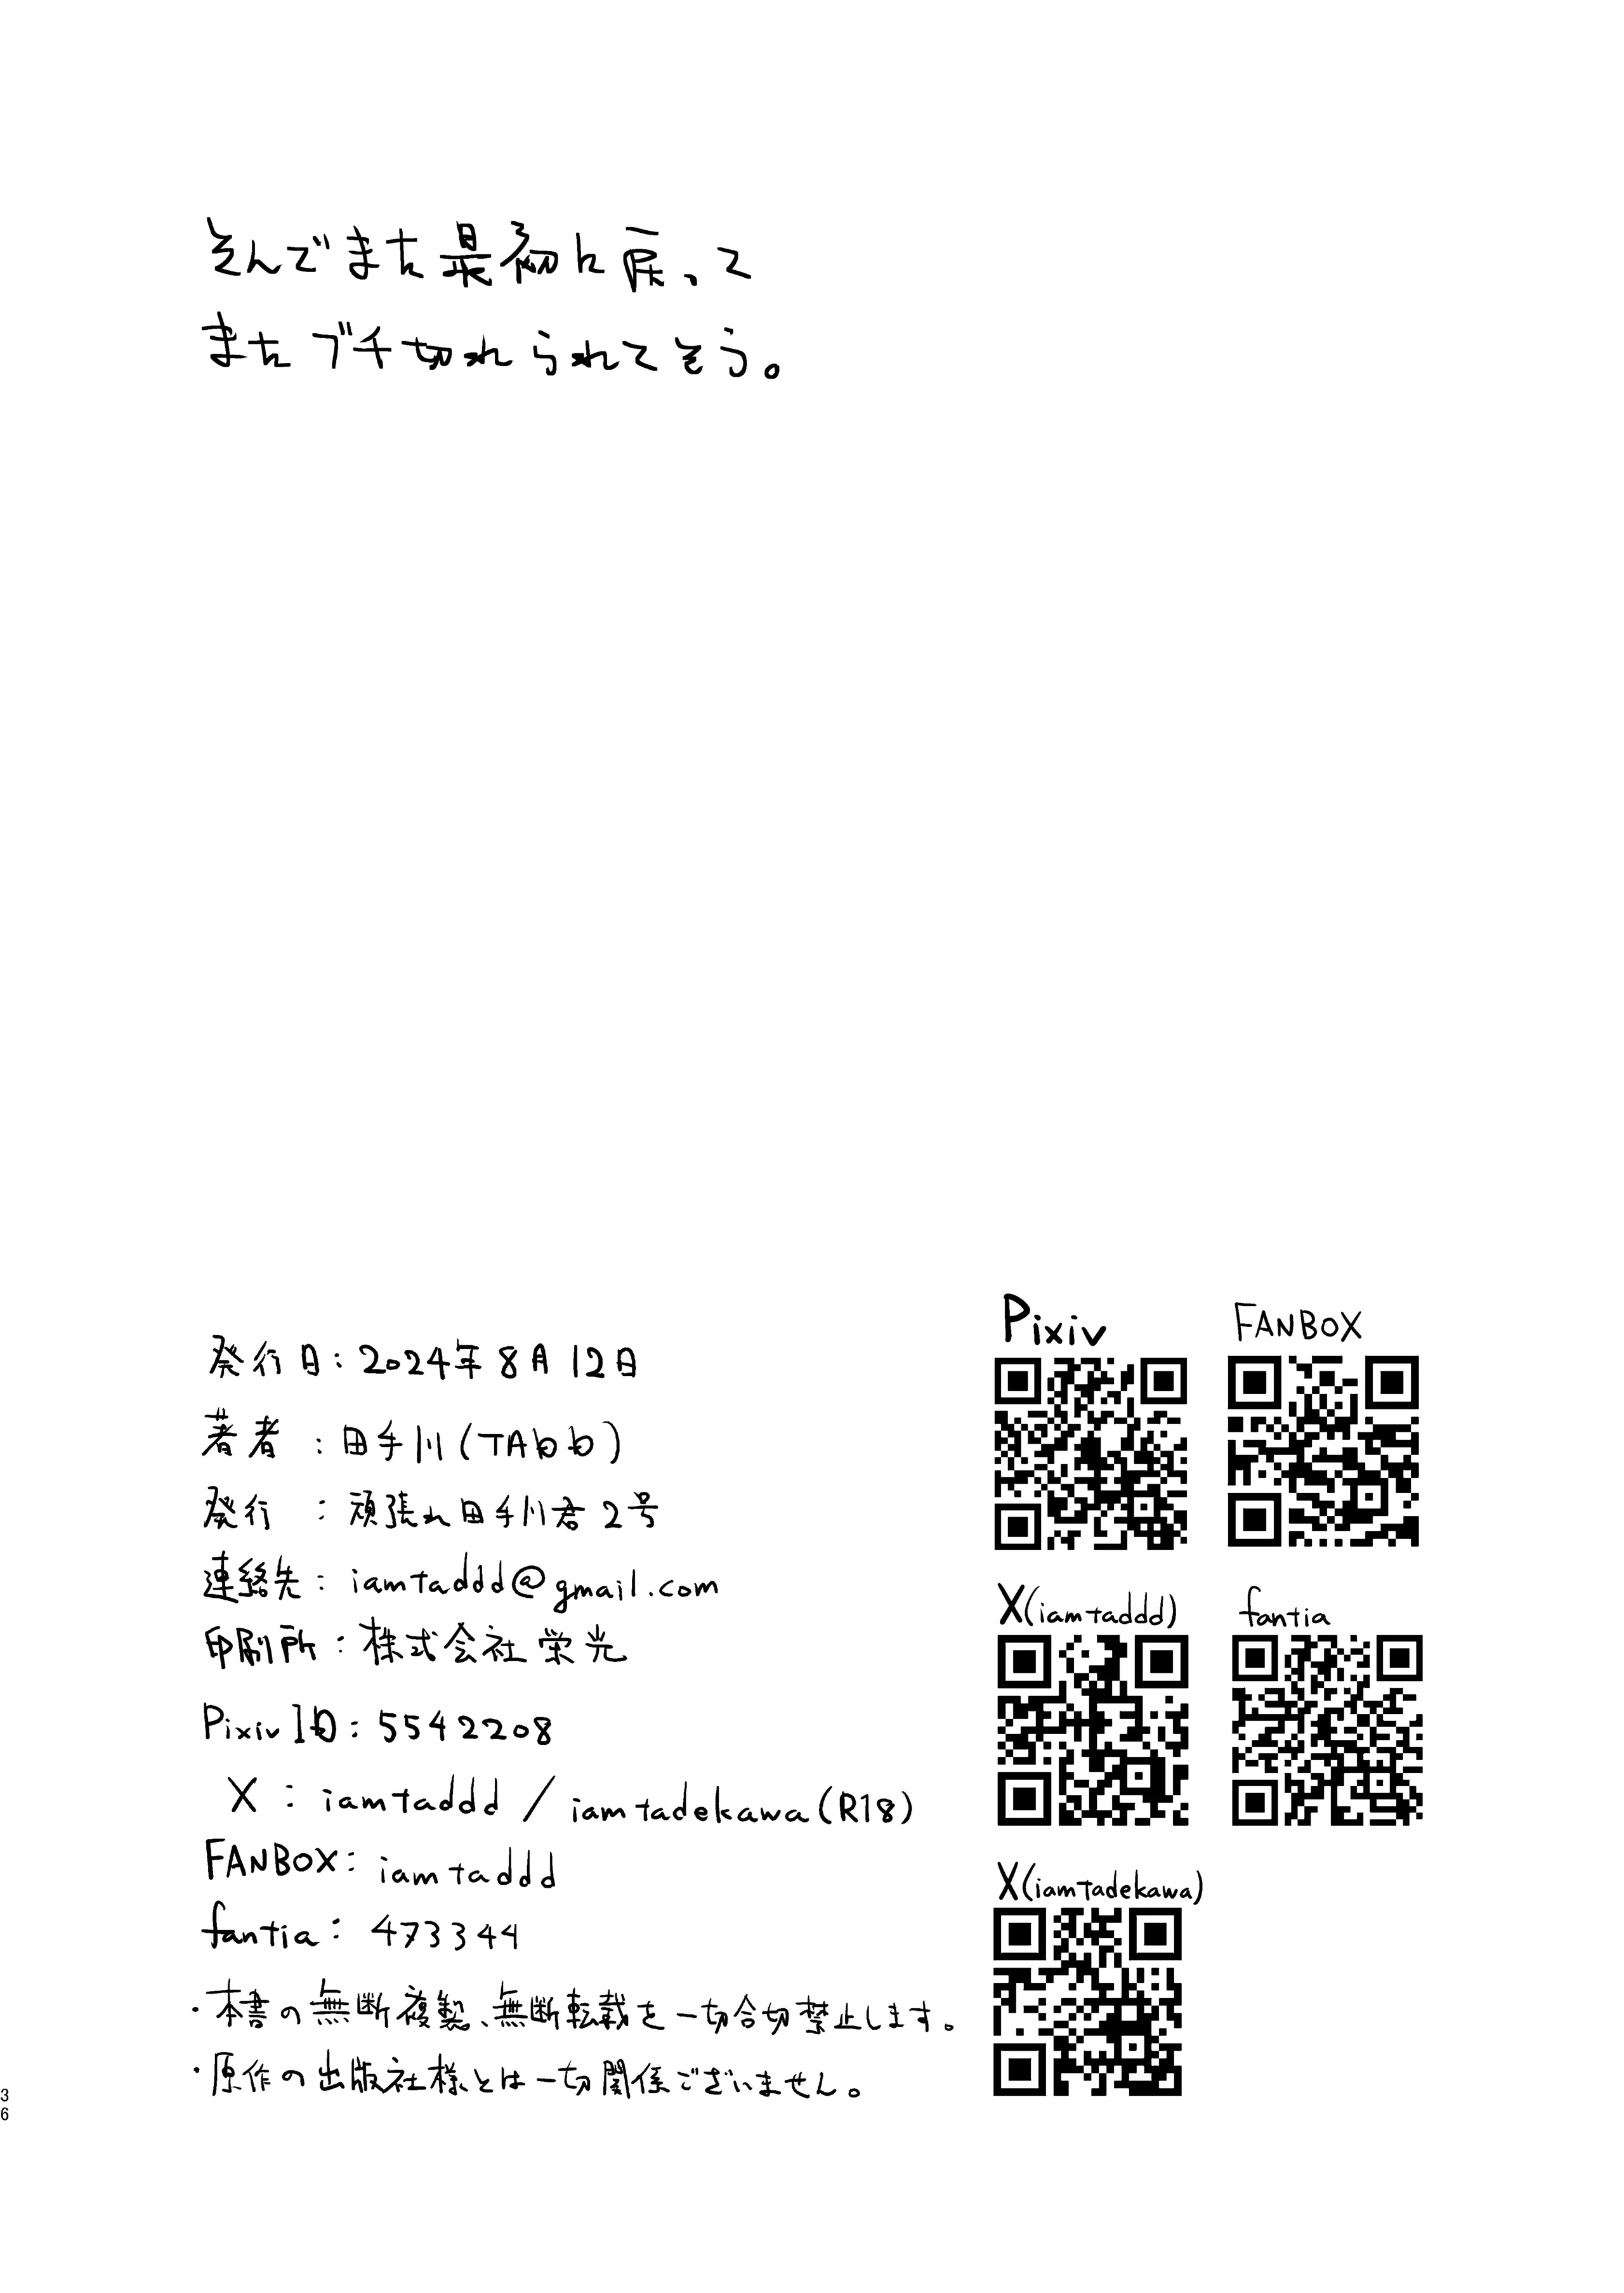 そんでまた最初に戻って
またブチ切れられてそう。
Pixiv
FANBOX
発行日：2024年8月12日
著者：田手川(TADD)
発行：頑張れ田手川君2号
連絡先：iamtaddd@gmail.com
印刷所：株式会社栄光
Pixiv ID：5542208
X：iamtaddd / iamtadekawa(R18)
FANBOX：iamtaddd
fantia：473344
・本書の無断複製、無断転載を一切合切禁止します。
・原作の出版社様とは一切関係ございません。
X(iamtaddd)
fantia
X(iamtadekawa)
36